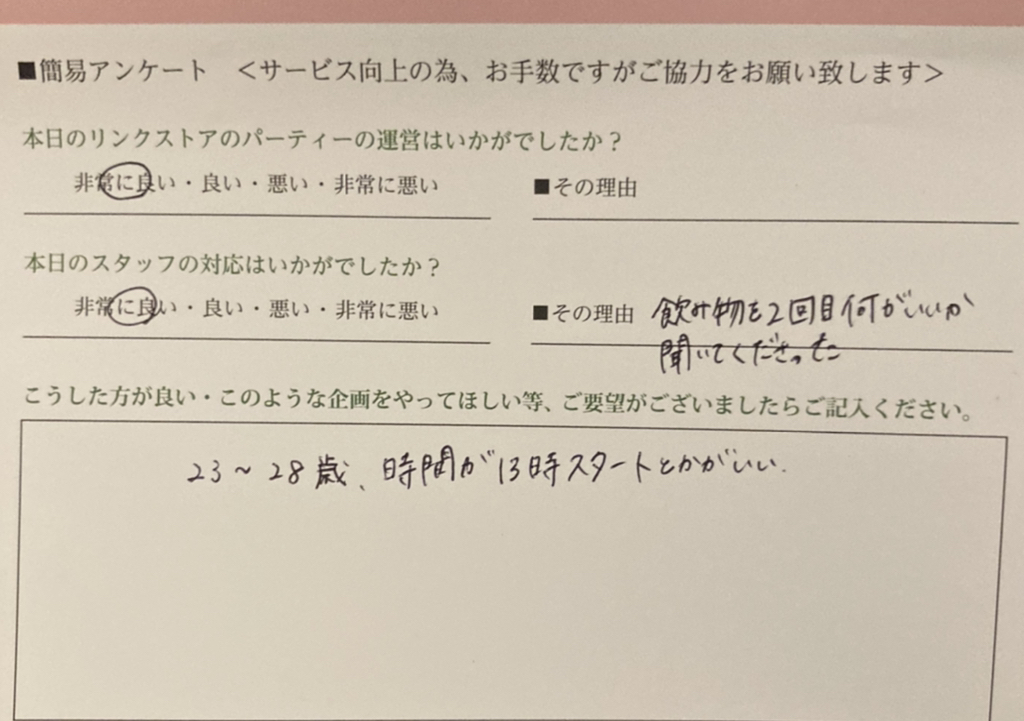 ■簡易アンケート ＜サービス向上の為、お手数ですがご協力をお願い致します＞
本日のリンクストアのパーティーの運営はいかがでしたか？
非常に良い・良い・悪い・非常に悪い ■その理由
本日のスタッフの対応はいかがでしたか？
非常に良い・良い・悪い・非常に悪い ■その理由 飲み物を2回目何がいいか
聞いてくださった
こうした方が良い・このような企画をやってほしい等、ご要望がございましたらご記入ください。
23～28歳、時間が13時スタートとかがいい.